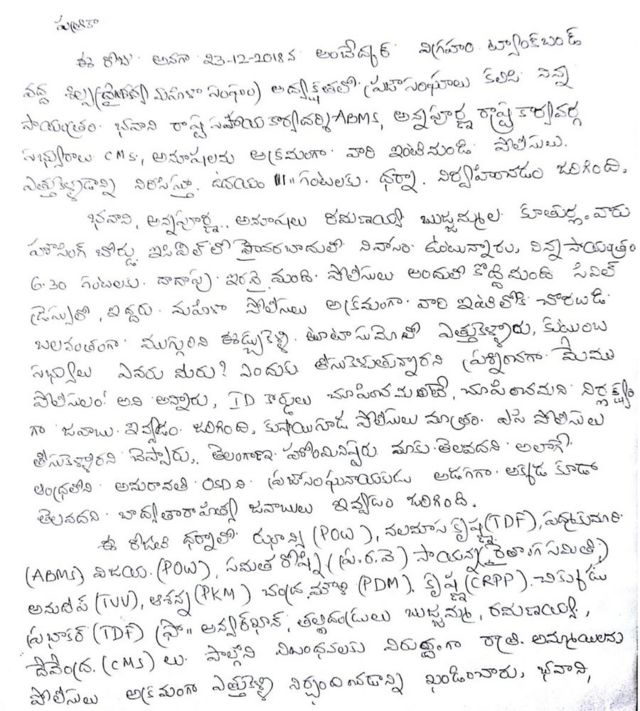 పత్రికా
ఈ రోజు అనగా 23-12-2018న అంబేద్కర్ విగ్రహం ట్యాంక్‌బండ్
వద్ద శిల్ప (చైతన్య మహిళా సంఘం) అధ్యక్షతలో ప్రజాసంఘాలు కలిసి నిన్న
సాయంత్రం భవాని రాష్ట్ర సహాయ కార్యదర్శి ABMS, అన్నపూర్ణ రాష్ట్ర కార్యవర్గ
సభ్యురాలు CMS, అనూషలను అక్రమంగా వారి ఇంటినుండి పోలీసులు
ఎత్తుకెళ్ళడాన్ని నిరసిస్తూ ఉదయం 11 గంటలకు ధర్నా నిర్వహించడం జరిగింది.
భవాని, అన్నపూర్ణ, అనూషలు రమణయ్య బుజ్జమ్మల కూతుర్లు. వారు
హౌసింగ్ బోర్డు ఇసిఐఎల్ లో హైదరాబాదులో నివాసం ఉంటున్నారు, నిన్న సాయంత్రం
6.30 గంటలకు దాదాపు ఇరవై మంది పోలీసులు అందులో కొద్ది మంది సివిల్
డ్రెస్సులో, ఇద్దరు మహిళా పోలీసులు అక్రమంగా వారి ఇంటిలోకి చొరబడి
బలవంతంగా ముగ్గురిని ఈడ్చుకెళ్ళి టాటాసుమోలో ఎత్తుకెళ్ళారు, కుటుంబ
సభ్యులు ఎవరు మీరు? ఎందుకు తీసుకెళుతున్నారని ప్రశ్నించగా మేము
పోలీసులం అని అన్నారు, ID కార్డులు చూపించమంటే, చూపించమని నిర్లక్ష్యం
గా జవాబు ఇవ్వడం జరిగింది. కుషాయిగూడ పోలీసులు మాత్రం ఏపి పోలీసులు
తీసుకెళ్ళారని చెప్పారు, తెలంగాణ హోంమినిష్టరు మాకు తెలవదని అలాగే
ఆంధ్రలోని అమరావతి OSDని ప్రజాసంఘనాయకుడు అడగగా అక్కడ కూడా
తెలవదని బాధ్యతారాహిత్య జవాబులు ఇవ్వడం జరిగింది.
ఈ రోజటి ధర్నాలో ఝాన్సి (POW), నలమాస కృష్ణ (TDF), పద్మకుమారి
(ABMS) విజయ (POW), సమత రోష్ని (ప్ర.ర.వే) సాయన్న (రైతాంగ సమితి)
అనుదీప్ (TVV), ఆశన్న (PKM) చంద్రమౌళి (PDM), కృష్ణ (CRPP) చిక్కుడు
ప్రభాకర్ (TDF) ప్రొ౹౹ అన్వర్‌ఖాన్, తల్లిదండ్రులు బుజ్జమ్మ, రమణయ్య,
దేవేంద్ర (CMS) లు పాల్గొని నిబంధనలకు విరుద్ధంగా రాత్రి అమ్మాయిలను
పోలీసులు అక్రమంగా ఎత్తుకెళ్ళి నిర్బంధించడాన్ని ఖండించారు, భవాని,